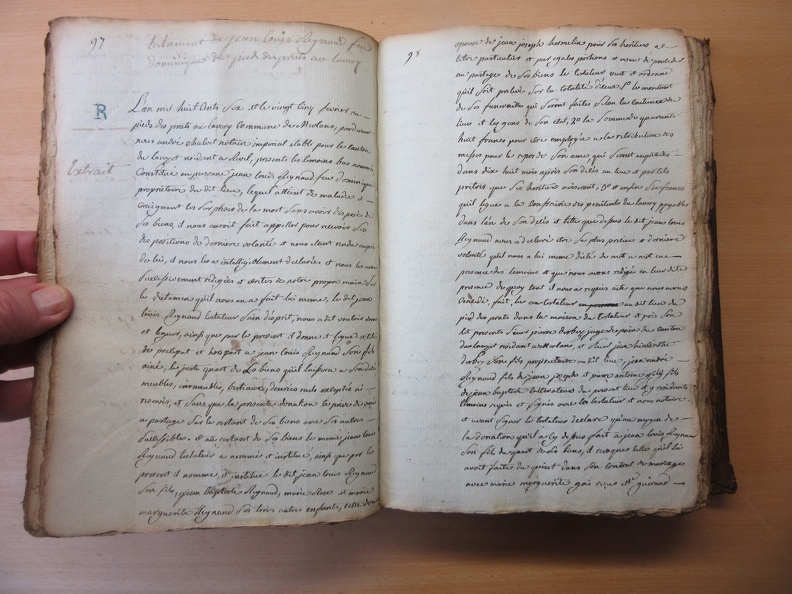 97
testament de jean louis Reynaud feu
dominique de pied des prats au lavoy
R
L'an mil huit cents six et le vingt cinq fevrier au
pied des prats au lavoy Commune de Meolans, pardevant
nous andré chabot notaire imperial etabli pour le canton
du lauzet resident a Revel, presents les temoins bas nommés
Extrait
Constitué en personne jean louis Reynaud feu dominique
propriétaire du dit lieu, lequel atteint de maladie &
craignant les surprises de la mort sans avoir disposé de
ses biens, il nous auroit fait appeller pour recevoir ses
dispositions de derniere volonté et nous etant rendu auprès
de lui, il nous les a intelligiblement déclarées et nous les avons
successivement redigées et ecrites de notre propre main sur
la dictée qu'il nous en a fait lui meme, le dit jean
louis Reynaud testateur sain d'esprit, nous a dit vouloir donner
et leguer, ainsi que par le present il donne et legue a titre
de preciput et hors part a jean louis Reynaud son fils
ainé, la juste quart de biens qu'il laissera a son décès
meubles, immeubles, bestiaux, denrées nuls exceptés ni
reservés, et sans que la presente donation le prive de venir
a partage sur le restant de ses biens avec ses autres
successibles. et au restant de ses biens le meme jean louis
Reynaud testateur a nommé et institué, ainsi que par le
present il nomme et institue le dit jean louis Reynaud
son fils, jean baptiste Reynaud, marie Rose et marie
marguerite Reynaud ses trois autres enfants, cette derniere
98
epouse de jean joseph hermelin pour ses heritiers a
titre particulier et par egales portions & avant de proceder
au partage de ses biens le testateur veut et ordonne
qu'il soit prelevé sur la totalité d'eux 1° le montant
de ses funerailles qui seront faites selon la coutume du
lieu et les gens de son etat, 2° la somme de quarante
huit francs pour etre employée a la retribution des
messes pour le repos de son ame qui seront acquittées
dans dix huit mois après son décès au lieu et par tels
pretres que ses heritiers aviseront, 3° et enfin six francs
qu'il legue a la confrairie des penitents du lavoy payables
dans l'an de son décès et telle que dessus le dit jean louis
Reynaud nous a declaré etre sa plus precise & derniere
volonté qu'il nous a lui meme dictée de mot a mot en
presence des temoins et que nous avons redigé en leur dite
presence de quoy tout il nous a requis acte que nous avons
concédé, fait, lu au testateur au dit lieu de
pied des prats dans la maison du testateur et près son
lit presents sieur pierre derbez juge de paix du canton
du lauzet residant a Meolans, et sieur jean hermentaire
derbez son fils proprietaire dit lieu, jean andré
Reynaud fils de jean joseph et pierre antoine fils
de jean baptiste cultivateurs du present lieu et y residants
temoins requis et signés avec les testateur et nous notaire.
et avant signer le testateur declare qu'au moyen de
la donation qu'il a cy dessus fait a jean louis Reynaud
son fils du quart de ses biens, il revoque celle qu'il lui
avoit faite du quint dans son contrat de mariage
avec marie marguerite gair reçu Me guirand